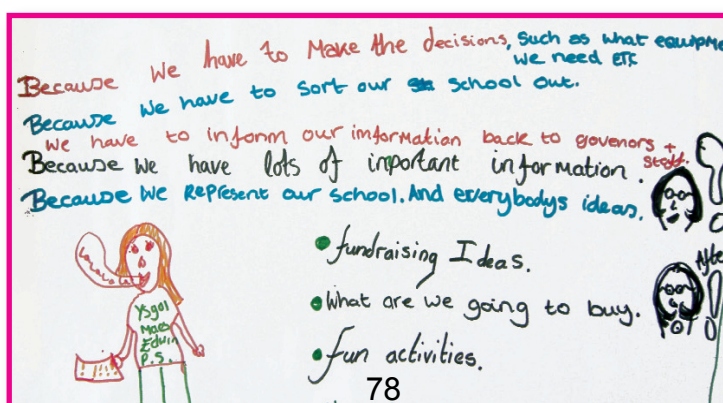 Because we have to make the decisions, such as what equipme
we need ETC
Because we have to sort our school out.
Because we have to inform our imformation back to govenors +
staff.
Because we have lots of important information.
Because we Represent our school. And everybodys ideas.
Afte
Lalalala
Ysgol
Maes
Edwin
P.S.
fundraising Ideas.
What are we going to buy.
fun activities.
78